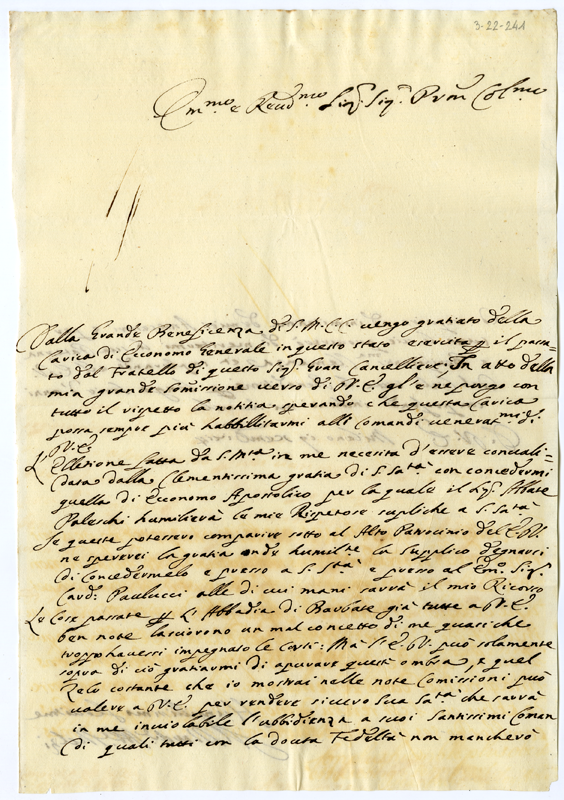 3-22-241
Em.mo e Reud.mo Sig.r Sig.r Pron Col.mo
Dalla Grande Beneficenza di S. M. C. C. uengo gratiato della
Carica di Economo Generale in questo stato esercita p il passa=
to dal Fratello di questo Sig.r Gran Cancelliere; In atto della
mia grande somissione uerso di V. E. gl'e ne porgo con
tutto il rispetto la notitia sperando che questa Carica
possa sempre più habbilitarmi alli Comandi uenerat.mi di
V. E.
L'Ellettione fatta da S. M.tà in me necesita d'essere conuali=
data dalla Clementissima gratia di S. Sa.tà con concedermi
quella di Economo Apostolico per la quale il Sig.r Abbate
Paleschi humilierà le mie Rispetose supliche a S. Sa.tà
Se queste potessero comparire sotto al Alto Patrocinio del E. V.
ne spererei la gratia onde humil.te la supplico degnarsi
di Concedermelo e presso a S. S.tà e presso al Em.o Sig.r
Card. Paulucci alle di cui mani sarrà il mio Ricorso
Le Cose passate p L'Abbadia di Bauuate già tutte a V. E.
ben note lasciorono un mal concetto di me quasi che
troppo hauessi impegnato le Corti: Mà S. E. V. può solamente
sopra di ciò gratiarmi di apurare questi ombra, e quel
zelo costante che io mostrai nelle note Comissioni può
ualere a V. E. per rendere sicuro Sua Sa.tà che sarrà
in me inuiolabile l'ubbidienza a suoi santissimi Coman
di quali tutti con la douta Fedeltà non mancherò